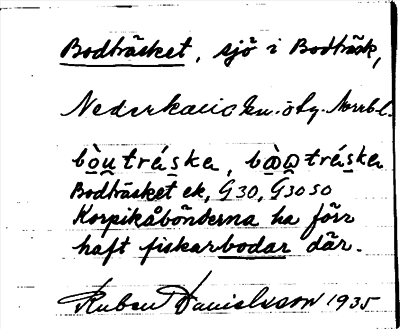 Bodträsket, sjö i Bodträsk,
Nederkalix sn. Norrb. l.
bòutrǽska, 
Bodträsket ek, G30, G30 SO
Korpikåbönderna ha förr
haft fiskarbodar där.
Ruben Danielsson 1935